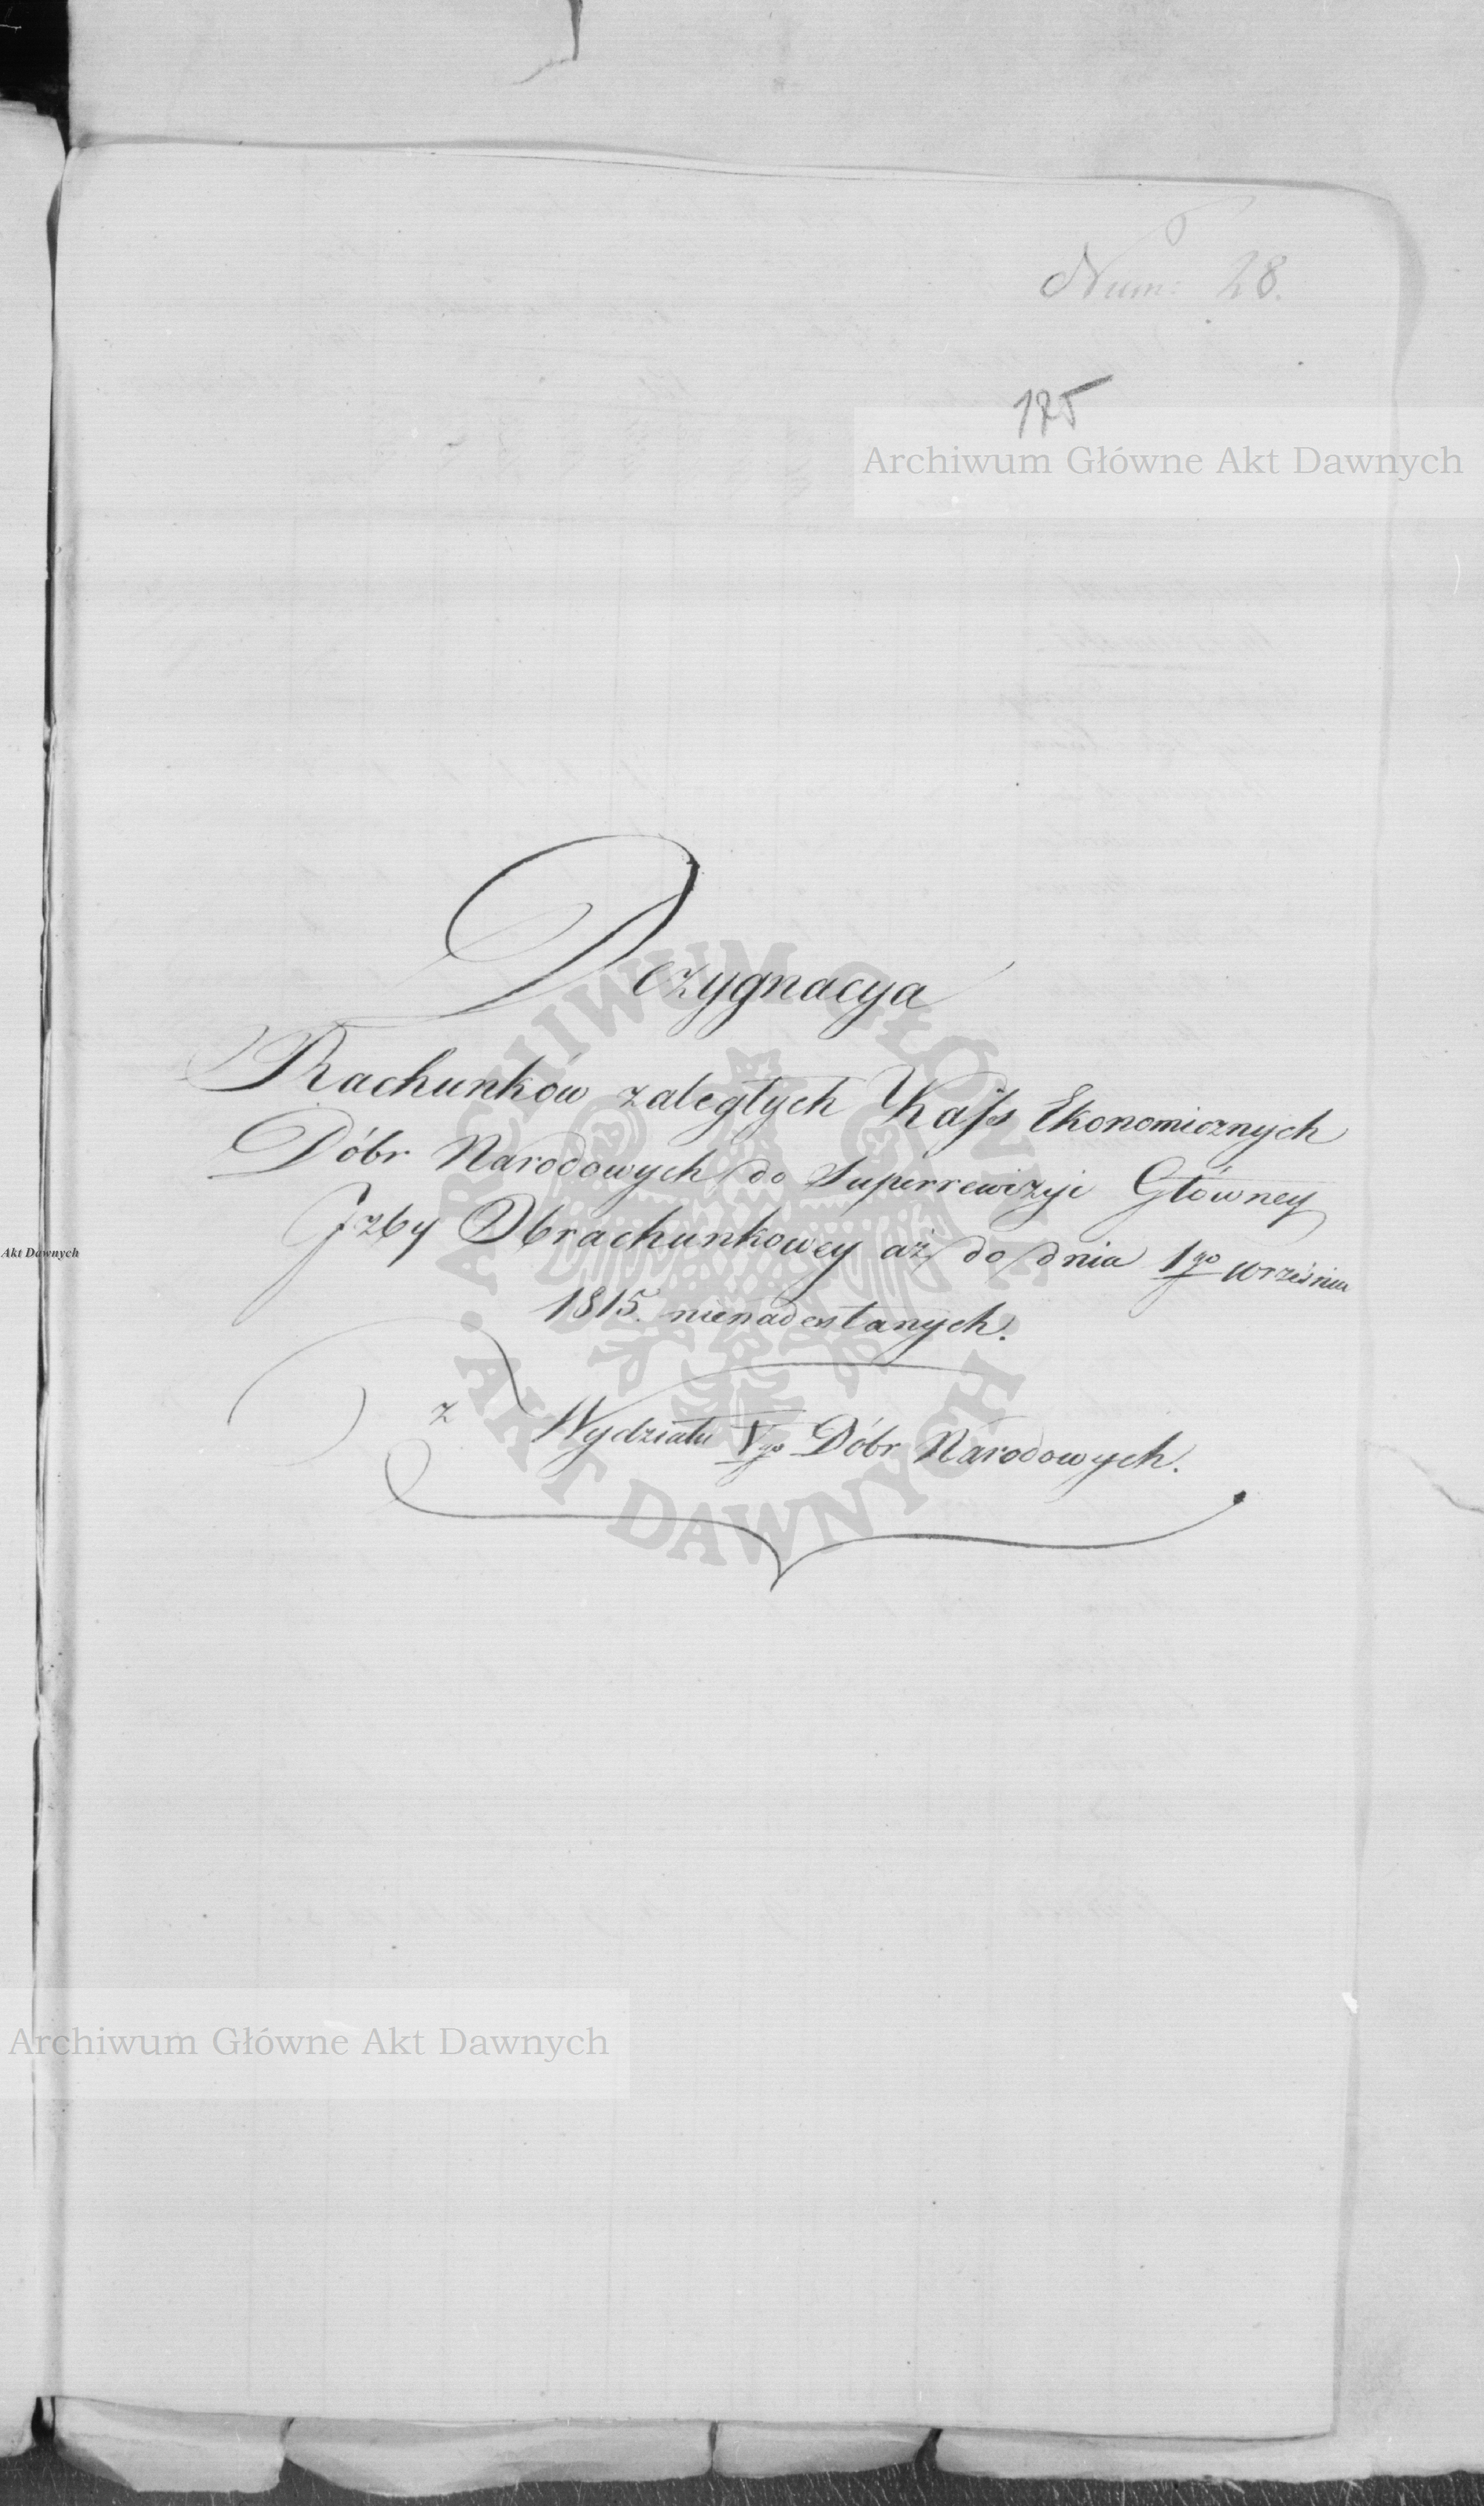 Num: 28.
125
Archiwum Główne Akt Dawnych
Dezygnacya
Rachunków zaległych Kass Ekonomicznych
Dóbr Narodowych do Superrewizyi Główney
Jzby Obrachunkowey aż do dnia 1go Września
1815. nienadesłanych.
z Wydziału Vgo Dóbr Narodowych.
ARCHIWUM GŁÓWNE
• AKT DAWNYCH •
Akt Dawnych
Archiwum Główne Akt Dawnych